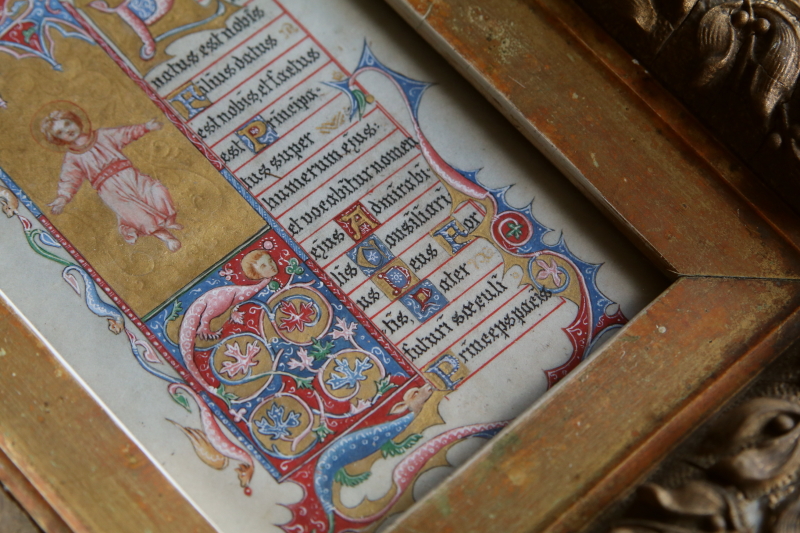 natus est nobis
Filius datus
est nobis, et factus
est Principa-
tus super
humerum ejus:
et vocabitur nomen
ejus Admirabi-
lis Consiliari
us Deus For
tis, Pater
futuri sæculi
Princeps pacis